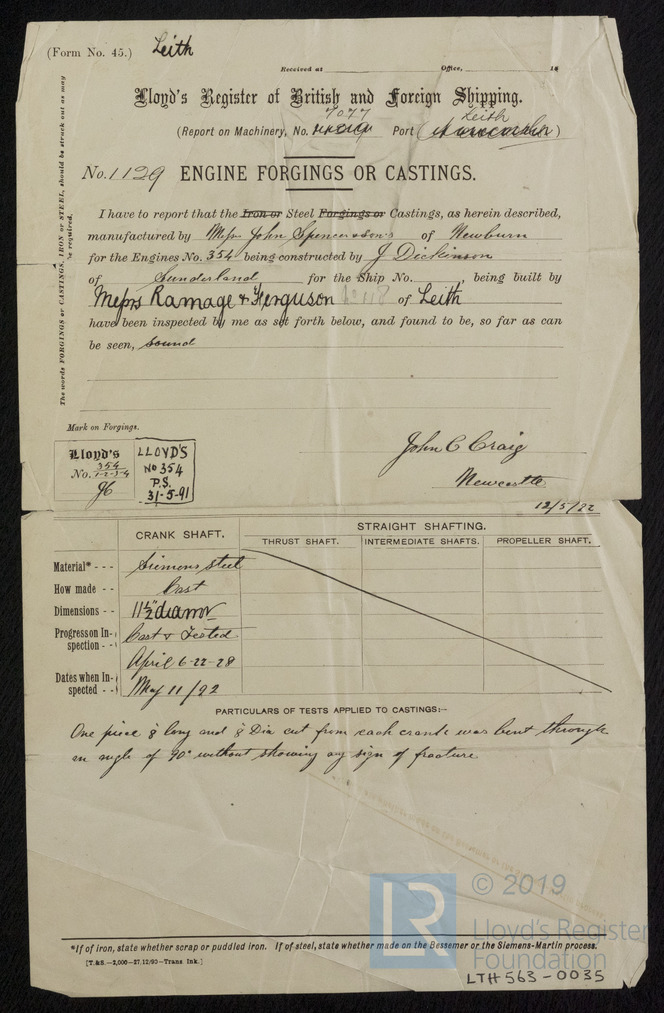 (Form No. 45.) Leith
Received at Office, 18
Lloyd's Register of British and Foreign Shipping.
7077 Leith
(Report on Machinery, No. Port )
No. 1129 ENGINE FORGINGS OR CASTINGS.
The words FORGINGS or CASTINGS, IRON or STEEL, should be struck out as may be required.
I have to report that the Iron or Steel Forgings or Castings, as herein described,
manufactured by Messrs John Spencer & Sons of Newburn
for the Engines No. 354 being constructed by J Dickinson
of Sunderland for the Ship No. , being built by
Messrs Ramage & Ferguson No 118 of Leith
have been inspected by me as set forth below, and found to be, so far as can
be seen, sound
Mark on Forgings.
Lloyd's
No. 354
1-2-3-4
LLOYD'S
No 354
P.S.
31-5-91
John C Craig
Newcastle
12/5/92
CRANK SHAFT. STRAIGHT SHAFTING.
THRUST SHAFT. INTERMEDIATE SHAFTS. PROPELLER SHAFT.
Material* - - - Siemens Steel
How made - - Cast
Dimensions - - 11½" diamr
Progress on Inspection - - Cast & Tested
April 6-22-28
Dates when Inspected - - May 11/92
PARTICULARS OF TESTS APPLIED TO CASTINGS:—
One piece 8 long and Dia cut from each crank was bent through
an angle of 90° without showing any sign of fracture
*If of iron, state whether scrap or puddled iron. If of steel, state whether made on the Bessemer or the Siemens-Martin process.
[T.&S.—2,000—27,12/90—Trans. Ink.]
LR
© 2019
Lloyd's Register
Foundation
LTH563-0035